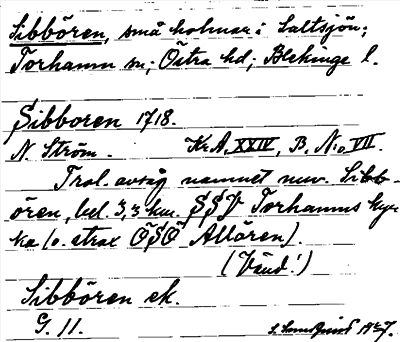 Sibbören, små holmar i Saltsjön;
Torhamn sn; Östra hd; Blekinge l.
Sibboren 1718.
N. Ström. Kr.A. XXIV, B. No VII.
Trol. avsåg namnet nuv. Sibb-
ören, bel. 3,3 km. SSV Torhamns kyr-
ka (o. strax ÖSÖ Allören).
(Vänd!)
Sibbören ek.
G. 11.